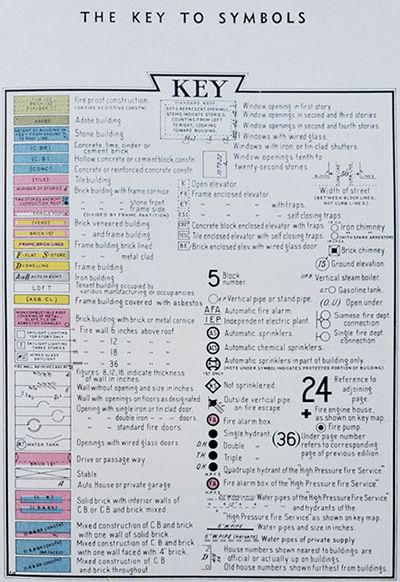 THE KEY TO SYMBOLS
KEY
Fire proof construction
(OR FIRE RESISTIVE CONST'N)
ADOBE
Adobe building
Stone building
(C.BR)
Concrete, lime, cinder or
cement brick
(C.B.)
Hollow concrete or cement block const'n
(CONC)
Concrete or reinforced concrete const'n
(TILE)
Tile building
Brick building with frame cornice
" " stone front
" " frame side
(DIVIDED BY FRAME PARTITION)
(VEND)
Brick veneered building
BRICK 1ST
" and frame building
FRAME, BRICK LINED
Frame building brick lined
" " metal clad.
DWELLING
Frame building
Iron building
LOFT
Tenant building occupied by
various manufacturing or occupancies.
(ASB. CL.)
Frame building covered with asbestos
Brick building with brick or metal cornice
Fire wall 6 inches above roof
" " 12 " " "
" " 18 " " "
" " 36 " " "
Figures 8,12,16 indicate thickness
of wall in inches.
Wall without opening and size in inches
Wall with openings on floors as designated
Opening with single iron or tin clad door.
" " double iron " " doors
" " standard fire doors
WATER TANK
Openings with wired glass doors.
Drive or passage way
Stable
A
Auto House or private garage
Solid brick with interior walls of
C.B. or C.B. and brick mixed.
Mixed construction of C.B. and brick
with one wall of solid brick.
Mixed construction of C.B. and brick
with one wall faced with 4" brick.
Mixed construction of C.B. and brick
throughout
MANSARD ROOF
DOTS REPRESENT OPENINGS,
STEMS INDICATE STORIES,
COUNTING FROM LEFT
TO RIGHT, LOOKING
TOWARD BUILDING
Window opening in first story.
Window openings in second and third stories.
Window openings in second and fourth stories
Windows with wired glass.
Windows with iron or tin clad shutters.
Window openings tenth to
twenty-second stories.
E
Open elevator
FE
Frame enclosed elevator
ET
" " " with traps.
ESC
" " " self closing traps
Concrete block enclosed elevator with traps.
Tile enclosed elevator with self closing traps
BE
Brick enclosed elev. with wired glass door
BLOCK
LINES
Width of street
(BETWEEN BLOCK LINES,
NOT CURB LINES)
Iron chimney
(WITH SPARK ARRESTORS)
Brick chimney.
(15) Ground elevation.
5 Block
number.
V.P. Vertical pipe or stand pipe.
AFA Automatic fire alarm.
IEP Independent electric plant.
AS Automatic sprinklers.
ACS Automatic chemical sprinklers.
Automatic sprinklers in part of building only.
(NOTE UNDER SYMBOL INDICATES PROTECTED PORTION OF BUILDING)
Vertical steam boiler.
GT Gasoline tank.
(O.U) Open under
Siamese fire dept
connection
Single fire dept.
connection.
NS Not sprinklered.
Outside vertical pipe
on fire escape
FA Fire alarm box.
Single hydrant
D H Double "
T H Triple "
Q H Quadruple hydrant of the "High Pressure Fire Service"
FA Fire alarm box of the "High Pressure Fire Service"
Water pipes of the "High Pressure Fire Service"
" " and hydrants of the
"High Pressure Fire Service" as shown on key map.
24 Reference to
adjoining
page.
Fire engine house,
as shown on key map.
Fire pump.
(36) Under page number
refers to corresponding
page of previous edition
Water pipes and size in inches.
Water pipes of private supply
House numbers shown nearest to buildings are
official or actually up on buildings.
Old house numbers shown furthest from buildings